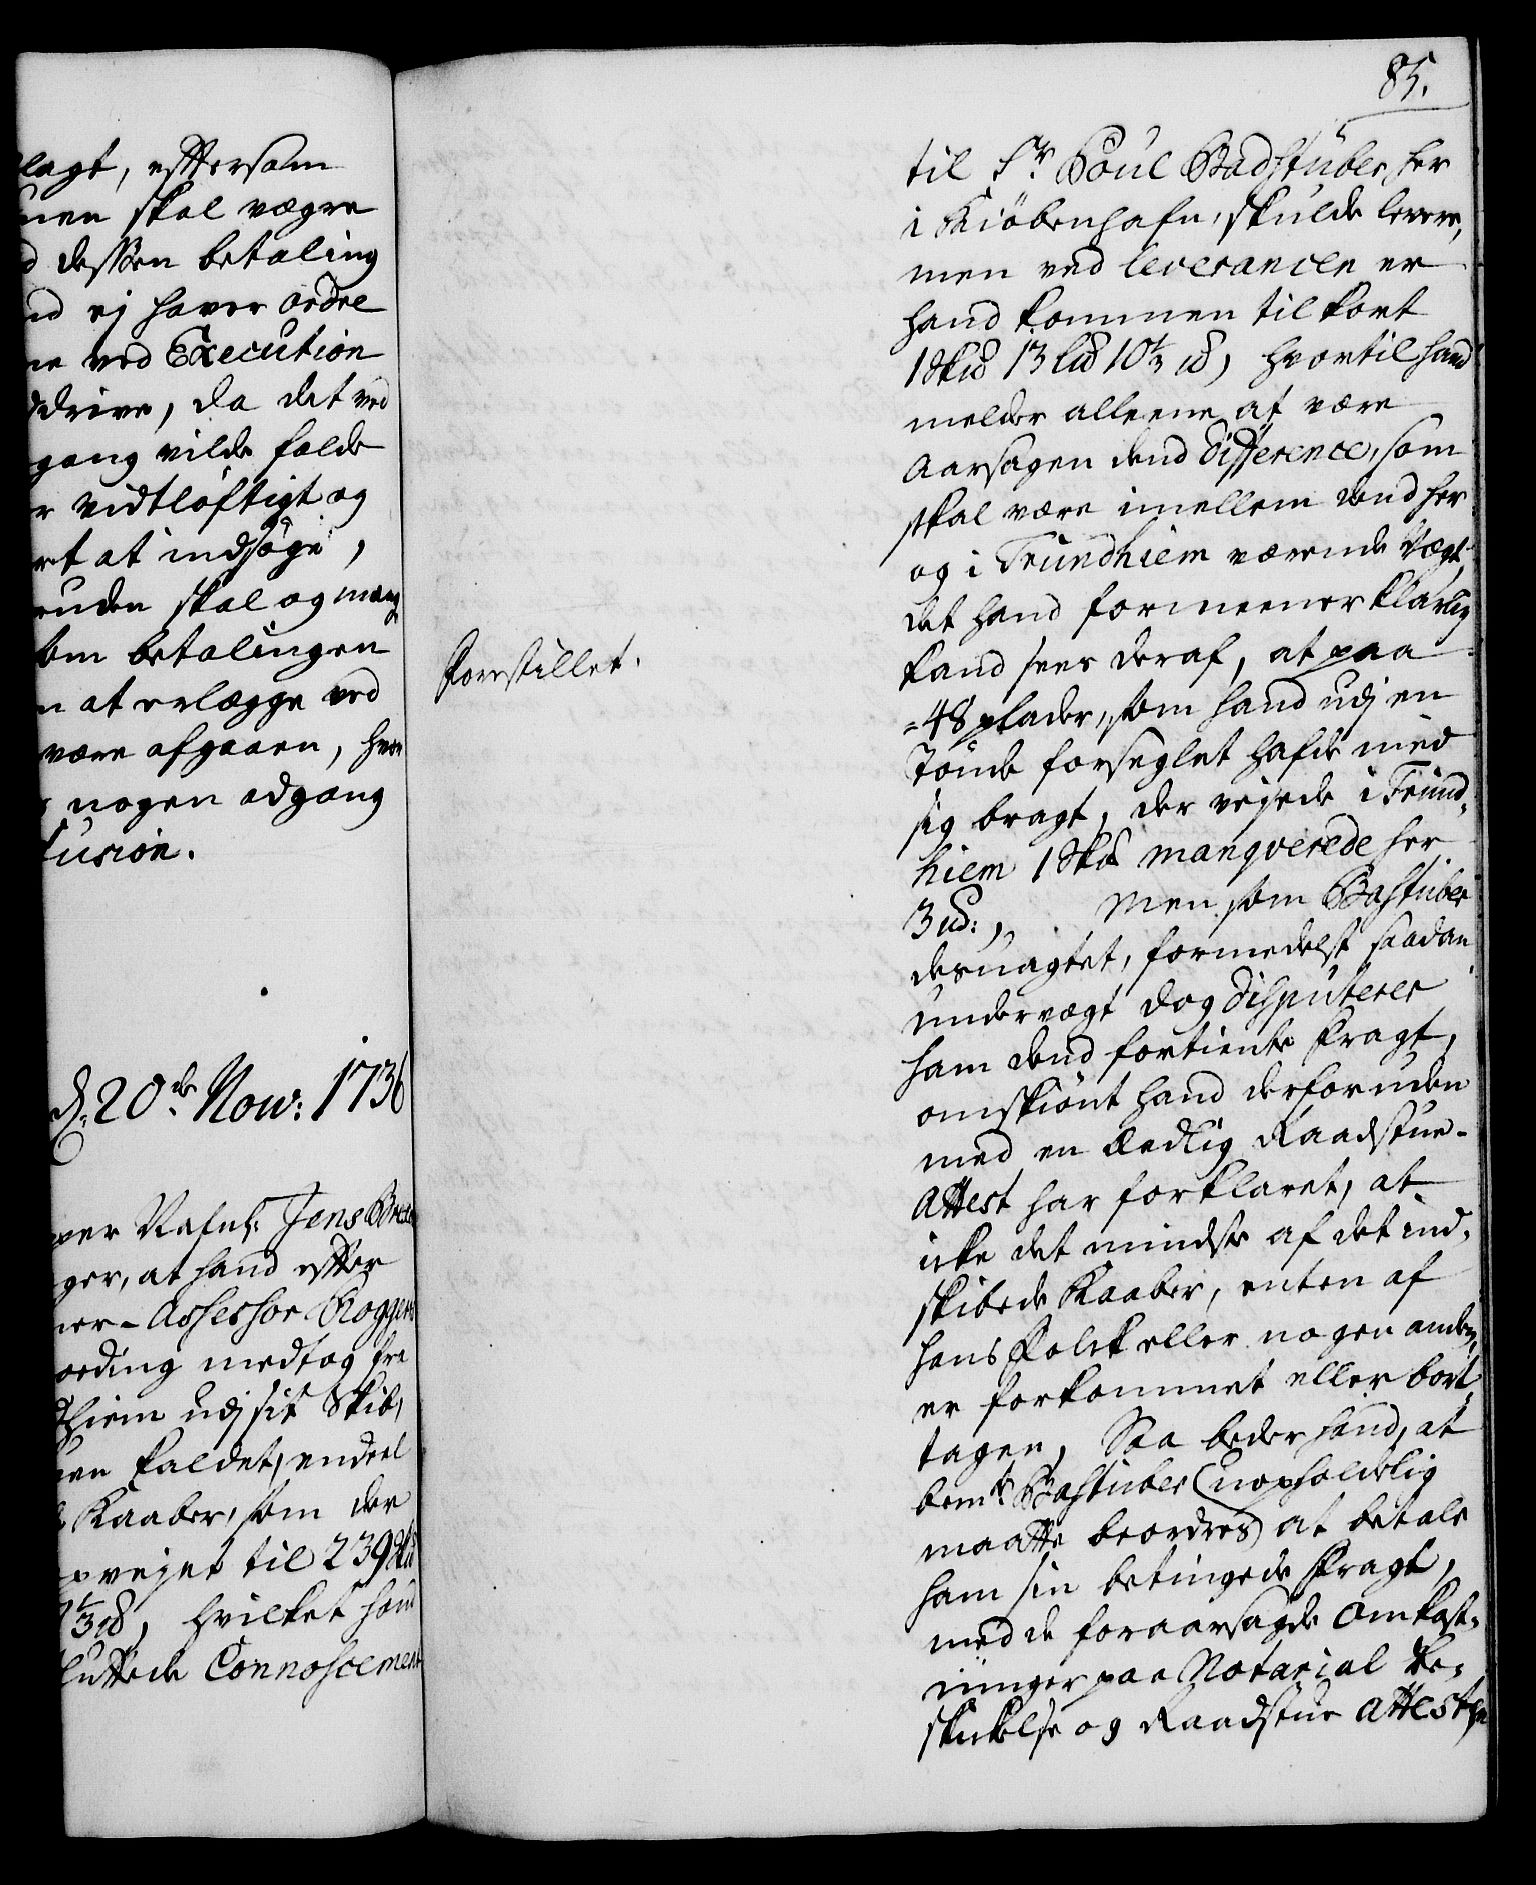 lagt, eftersom
nen skal vægre
d dessen betaling
nd ej haver ordre
ne ved Execution
ddrive, da det ved
gang vilde falde
r vidtløftigt og
rt at indsøge,
ruden skal og mang
om betalingen
n at erlægge ved
være afgaaen, hvor
nogen adgang
fusion.
d. 20de Nov: 1736
per Nafnl: Jens Brede
ger, at hand efter
ner-Assessor Roggers
ording medtog fra
hiem udj sit Skib,
nen kaldet, endeel
Kaaber, som der
pvejet til 239 Sk℔
⅓ ℔, hvilket hand
luttede Connoscement
85.
Forestillet.
til Sr Poul Badstuber, her
i Kiöbenhafn, skulde levere,
men ved leverancen er
hand kommen til kort
1 Sk℔ 13 L℔ 10⅓ ℔, hvortil hand
melder alleene at være
Aarsagen dend Difference, som
skal være imellem dend her
og i Trundhiem værende Vægt,
det hand formeener klarlig
kand sees deraf, at paa
48 plader, som hand udj en
Tönde forseglet hafde med
sig bragt, der vejede i Trund-
hiem 1 Sk℔ manqverede her
3 ℔:, Men som Bastuber
desuagtet, formedelst saadan
undervægt dog disputerer
ham dend fortiente Fragt,
omskiönt hand derforuden
med en Eedlig Raadstue-
Attest har forklaret, at
icke det mindste af det ind-
skibede Kaaber, enten af
hans Folck eller nogen anden,
er forkommet eller bort-
tagen, Saa beder hand, at
bemte Bastuber (uopholdelig
maatte beordres) at betale
ham sin betingede Fragt,
med de foraarsagde Omkost-
ninger paa Notarial be-
skickelse og Raadstue Attesten